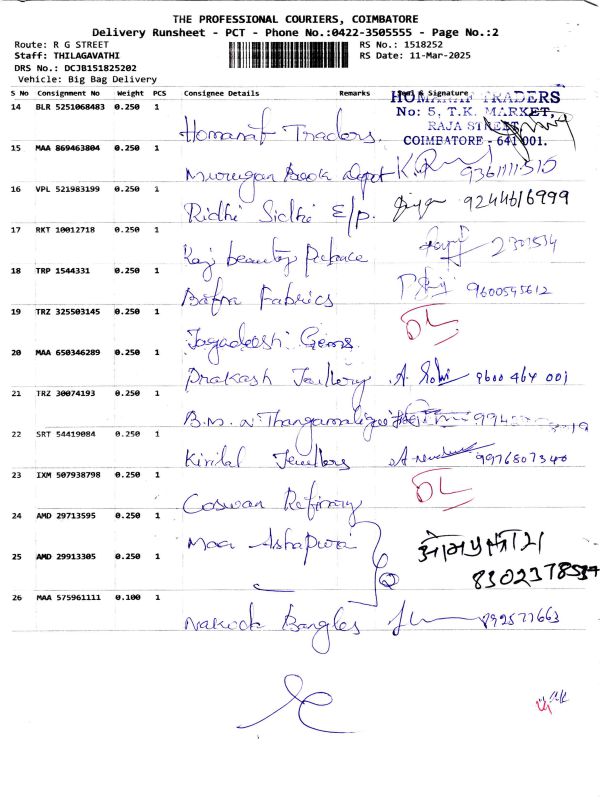 THE PROFESSIONAL COURIERS, COIMBATORE
Delivery Runsheet - PCT - Phone No.:0422-3505555 - Page No.:2
Route: R G STREET RS No.: 1518252
Staff: THILAGAVATHI RS Date: 11-Mar-2025
DRS No.: DCJB151825202
Vehicle: Big Bag Delivery
S No Consignment No Weight PCS Consignee Details Remarks Signature
HOMARAF TRADERS
No: 5, T.K. MARKET,
RAJA STREET,
COIMBATORE - 641 001.
14 BLR 5251068483 0.250 1 Homaraf Traders.
15 MAA 869463804 0.250 1 Murugan Book Dept 9361111515
16 VPL 521983199 0.250 1 Ridhi Sidhi E/p. 9244616999
17 RKT 10012718 0.250 1 Raj beauty 2301534
18 TRP 1544331 0.250 1 Bafna Fabrics 9600545612
19 TRZ 325503145 0.250 1 Jagadeesh Gems DL
20 MAA 650346289 0.250 1 Prakash Jewllery 9600 464 001
21 TRZ 30074193 0.250 1 B.M.N Thangamaligai
22 SRT 54419084 0.250 1 Kirilal Jewellers 9976807340
23 IXM 507938798 0.250 1 Coswan Refinary DL
24 AMD 29713595 0.250 1 Maa Ashapura
25 AMD 29913305 0.250 1
26 MAA 575961111 0.100 1 Nakoda Bangles